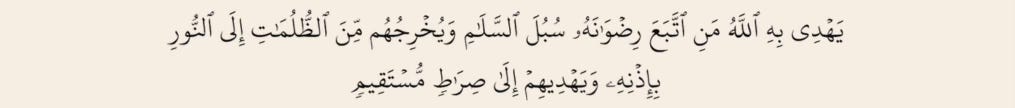 يَهْدِى بِهِ ٱللَّهُ مَنِ ٱتَّبَعَ رِضْوَٰنَهُۥ سُبُلَ ٱلسَّلَـٰمِ وَيُخْرِجُهُم مِّنَ ٱلظُّلُمَـٰتِ إِلَى ٱلنُّورِ
بِإِذْنِهِۦ وَيَهْدِيهِمْ إِلَىٰ صِرَٰطٍ مُّسْتَقِيمٍ